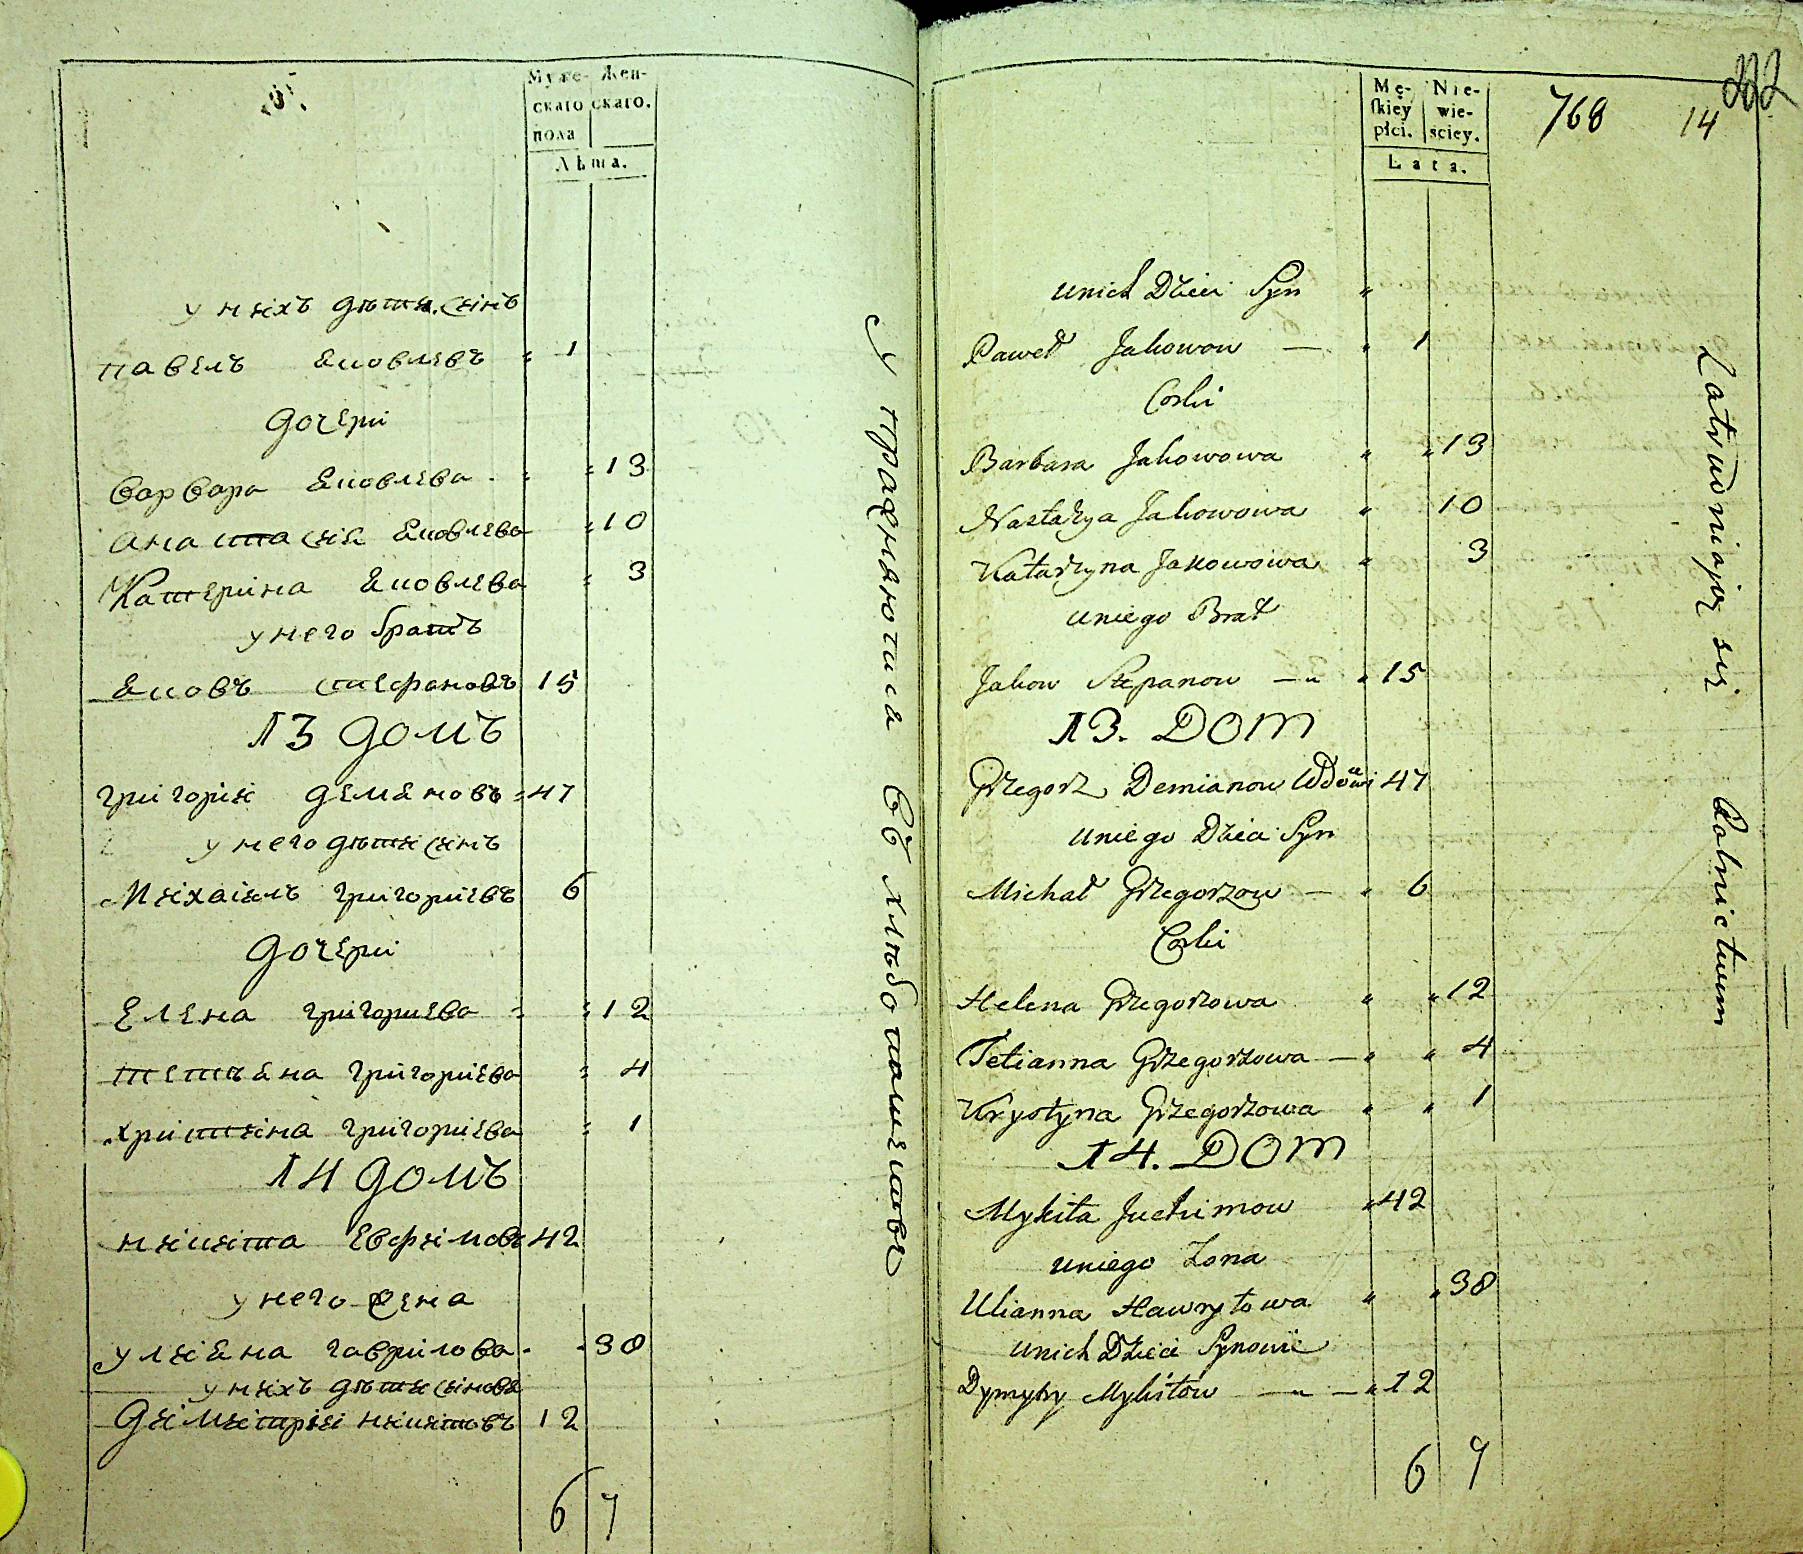 Муже- Жен-
скаго скаго.
пола
Лѣта.
у нихъ дѣти синъ
павелъ Яковлевъ 1
дочери
варвара Яковлева 13
анастасия Яковлева 10
Катерина Яковлева 3
у него братъ
Яковъ стефановъ 15
13 домъ
григорий демяновъ 47
у него дѣти синъ
Михаилъ григориевъ 6
дочери
Елена григориева 12
тетьяна григориева 4
христина григориева 1
14 домъ
никита Евфимовъ 42
у него жена
улияна гаврилова 30
у нихъ дѣти синовя
димитрий никитовъ 12
6 7
упражняютца въ хлѣбопашествѣ
222
768 14
Mę- Nie-
skiey wie-
płci. sciey.
Lata.
unich Dzieci Syn
Paweł Jakowow — 1
Corki
Barbara Jakowowa 13
Nastazya Jakowowa 10
Katarzyna Jakowowa 3
uniego Brat
Jakow Stepanow — 15
13. DOM
Grzegorz Demianow Wdowi 47
uniego Dzieci Syn
Michał Grzegorzow — 6
Corki
Helena Grzegorzowa 12
Tetianna Grzegorzowa — 4
Krystyna Grzegorzowa 1
14. DOM
Mykita Juchimow 42
uniego Zona
Ulianna Hawryłowa 30
unich Dzieci Synowie
Dymytry Mykitow — 12
6 7
Zatrudniają się Rolnictwem